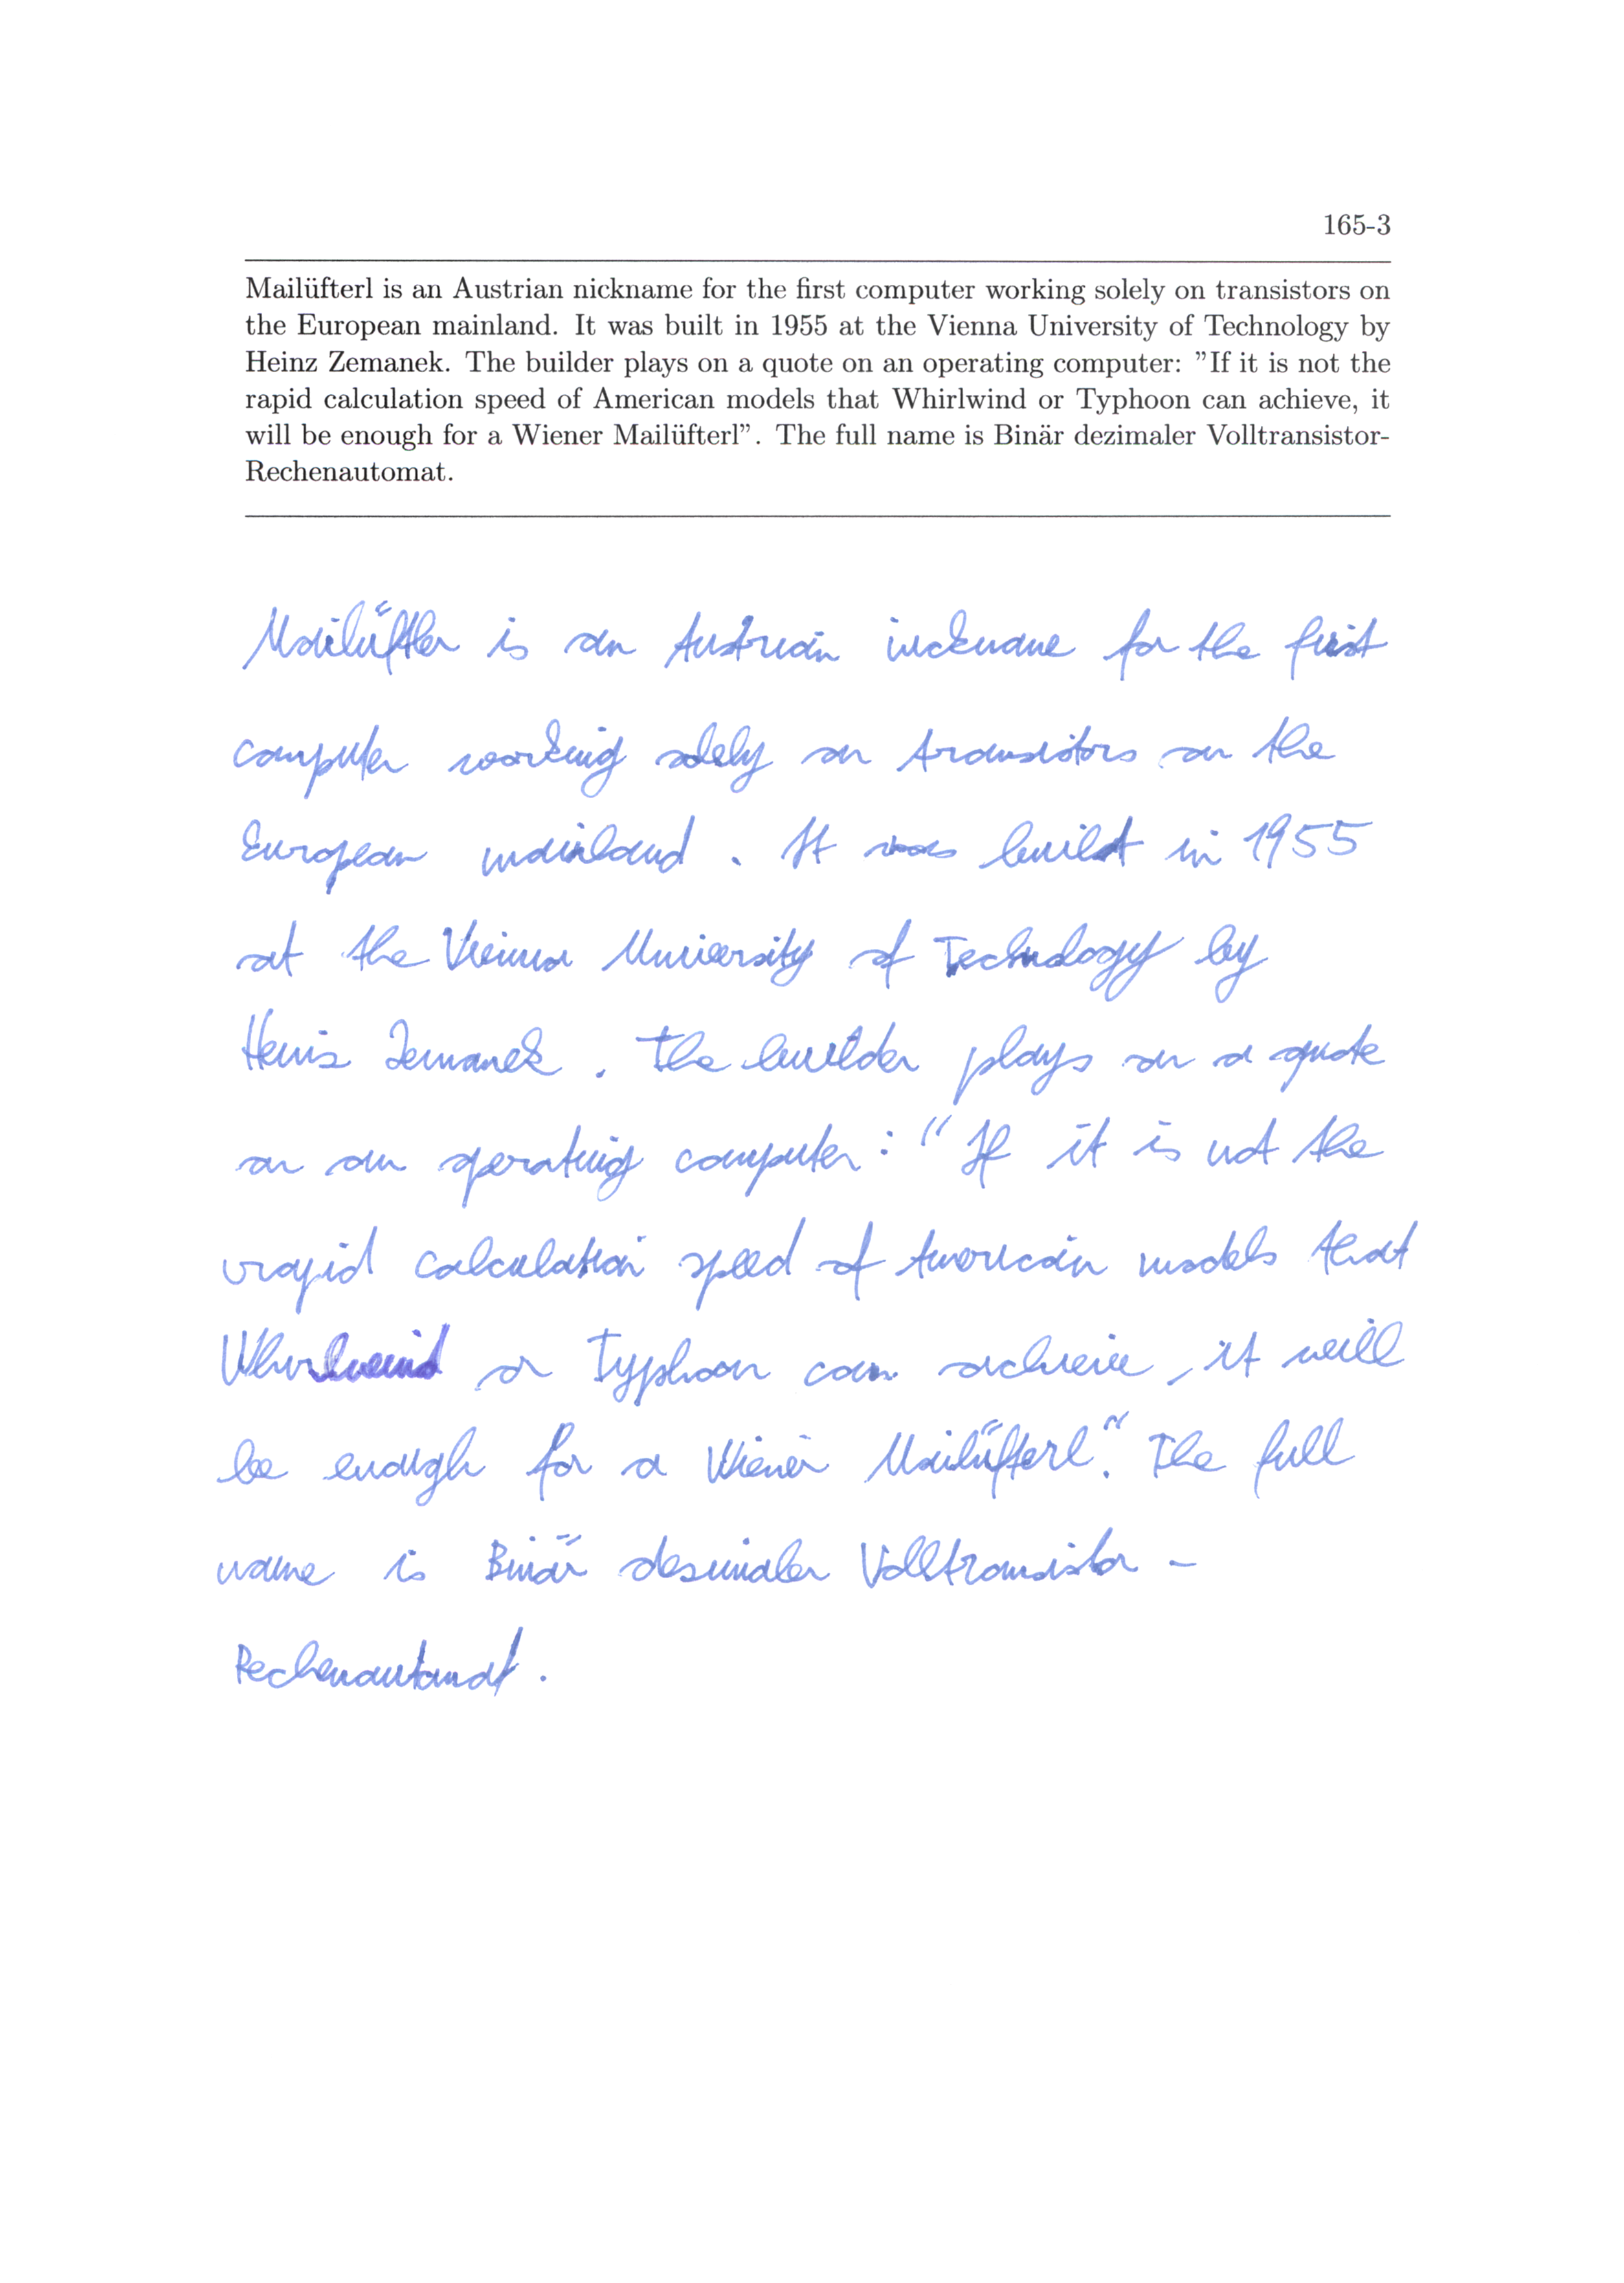 165-3
Mailüfterl is an Austrian nickname for the first computer working solely on transistors on
the European mainland. It was built in 1955 at the Vienna University of Technology by
Heinz Zemanek. The builder plays on a quote on an operating computer: ”If it is not the
rapid calculation speed of American models that Whirlwind or Typhoon can achieve, it
will be enough for a Wiener Mailüfterl”. The full name is Binär dezimaler Volltransistor-
Rechenautomat.
Mailüftler is an Austrian nickname for the first
computer working solely on transistors on the
European mainland. It was built in 1955
at the Vienna University of Technology by
Heinz Zemanek. The builder plays on a quote
on an operating computer: “If it is not the
rapid calculation speed of American models that
Whirlwind or Typhoon can achieve, it will
be enough for a Wiener Mailüfterl”. The full
name is Binär desimaler Volltransistor-
Rechenautomat.